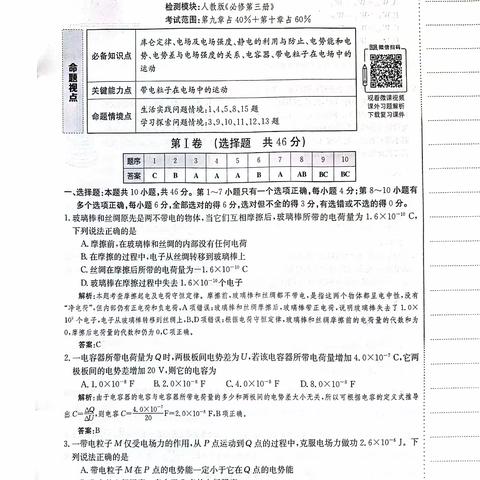 检测模块:人教版《必修第三册》
考试范围:第九章占40%+第十章占60%
命题视点
必备知识点
库仑定律、电场及电场强度、静电的利用与防止、电势能和电势、电势差与电场强度的关系、电容器、带电粒子在电场中的运动
关键能力点
带电粒子在电场中的运动
命题情境点
生活实践问题情境:1、4、5、8、15题
学习探索问题情境:3、9、10、11、12、13题
微信扫码
观看微课视频
课外习题解析
下载复习课件
第Ⅰ卷 (选择题 共46分)
题序 1 2 3 4 5 6 7 8 9 10
答案 C B A A A B A AB BC BC
一、选择题:本题共10小题,共46分。第1~7小题只有一个选项正确,每小题4分;第8~10小题有
多个选项正确,每小题6分,全部选对的得6分,选对但不全的得3分,有选错或不选的得0分。
1.玻璃棒和丝绸原先是两不带电的物体,当它们互相摩擦后,玻璃棒所带的电荷量为1.6×10⁻¹⁰ C,
下列说法正确的是
A.摩擦前,在玻璃棒和丝绸的内部没有任何电荷
B.在摩擦的过程中,电子从丝绸转移到玻璃棒上
C.丝绸在摩擦后所带的电荷量为-1.6×10⁻¹⁰ C
D.玻璃棒在摩擦过程中失去1.6×10⁻¹⁰个电子
解析:本题考查摩擦起电及电荷守恒定律。摩擦前,玻璃棒和丝绸都不带电,是指这两个物体都显电中性,没有
“净电荷”,但内部仍有正电荷和负电荷,A项错误;玻璃棒和丝绸摩擦后,玻璃棒带正电荷,说明玻璃棒失去了1.0×
10⁹个电子,电子从玻璃棒转移到丝绸上,B、D项错误;根据电荷守恒定律,玻璃棒和丝绸摩擦前的电荷量的代数和为
0,摩擦后电荷量的代数和仍为0,C项正确。
答案:C
2.一电容器所带电荷量为Q时,两极板间电势差为U,若该电容器所带电荷量增加4.0×10⁻⁷ C,它两
极板间的电势差增加20 V,则它的电容为
A.1.0×10⁻⁸ F B.2.0×10⁻⁸ F C.4.0×10⁻⁸ F D.8.0×10⁻⁸ F
解析:由于电容器的电容与电容器所带电荷量的多少和两极板间的电势差大小无关,所以可根据电容的定义式推导
出C=ΔQ/ΔU,则电容C=4.0×10⁻⁷/20 F=2.0×10⁻⁸ F,B项正确。
答案:B
3.一带电粒子M仅受电场力的作用,从P点运动到Q点的过程中,克服电场力做功2.6×10⁻⁸ J。下
列说法正确的是
A.带电粒子M在P点的电势能一定小于它在Q点的电势能